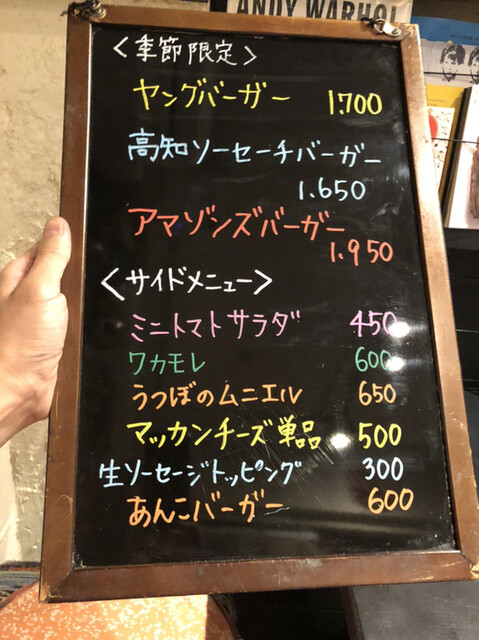 ANDY WARHOL
〈季節限定〉
ヤングバーガー 1.700
高知ソーセーチバーガー
1.650
アマゾンズバーガー
1.950
〈サイドメニュー〉
ミニトマトサラダ 450
ワカモレ 600
うつぼのムニエル 650
マッカンチーズ単品 500
生ソーセージトッピング 300
あんこバーガー 600